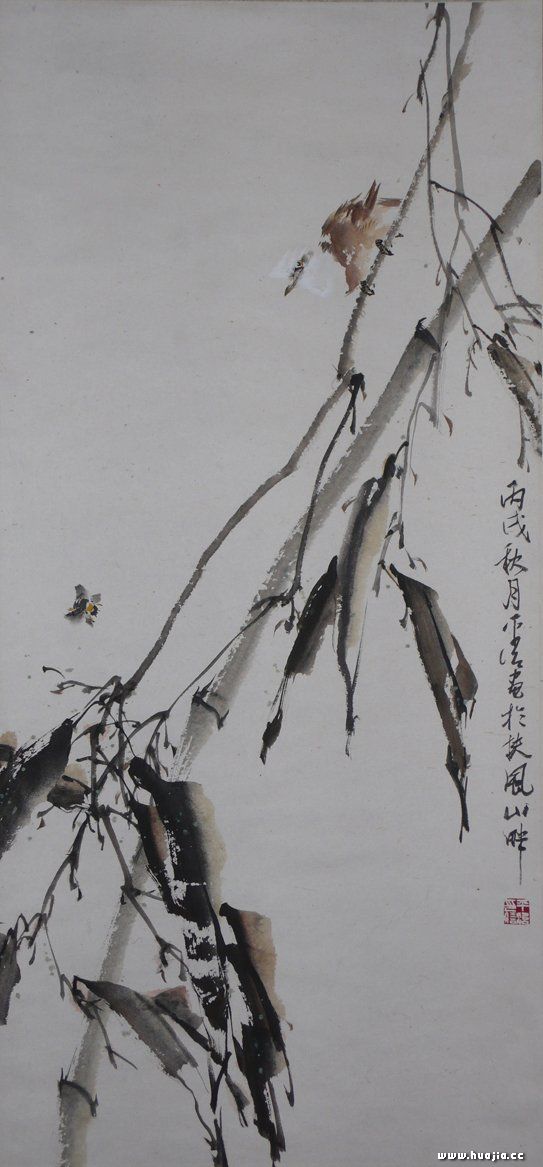 丙戌秋月平浩画於扶风山畔
www.huajia.cc